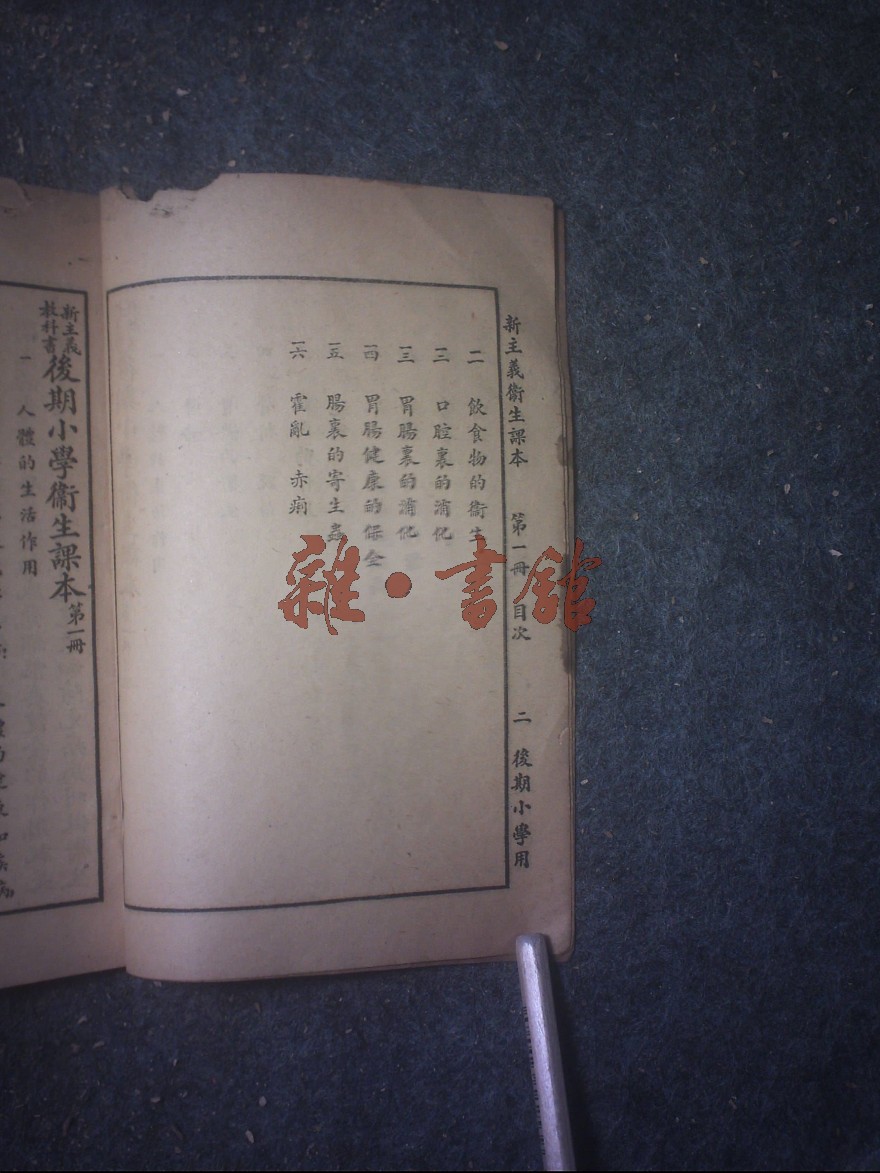 新主義衞生課本 第一冊 目次 二 後期小學用
一一 飲食物的衞生
一二 口腔裏的消化
一三 胃腸裏的消化
一四 胃腸健康的保全
一五 腸裏的寄生蟲
一六 霍亂 赤痢
新主義教科書 後期小學衞生課本 第一冊
一 人體的生活作用
雜·書館